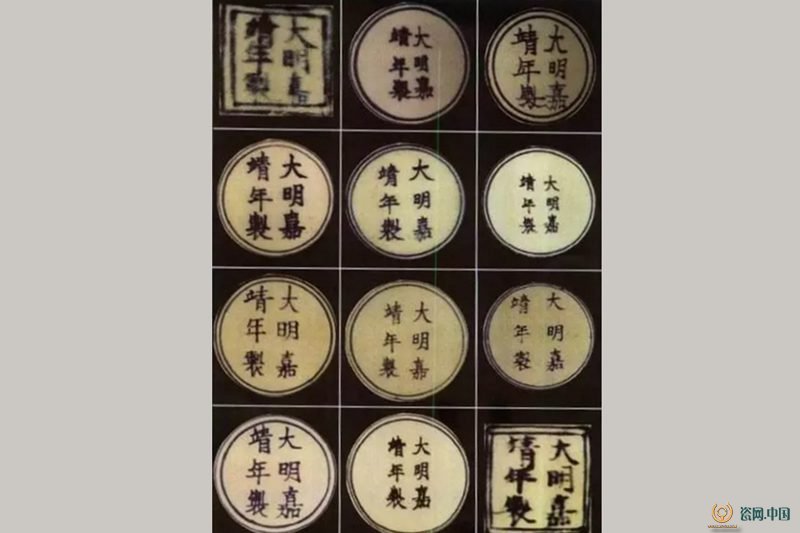 大明嘉
靖年製
大明嘉
靖年製
大明嘉
靖年製
大明嘉
靖年製
大明嘉
靖年製
大明嘉
靖年製
大明嘉
靖年製
大明嘉
靖年製
大明嘉
靖年製
大明嘉
靖年製
大明嘉
靖年製
大明嘉
靖年製
瓷网.中国